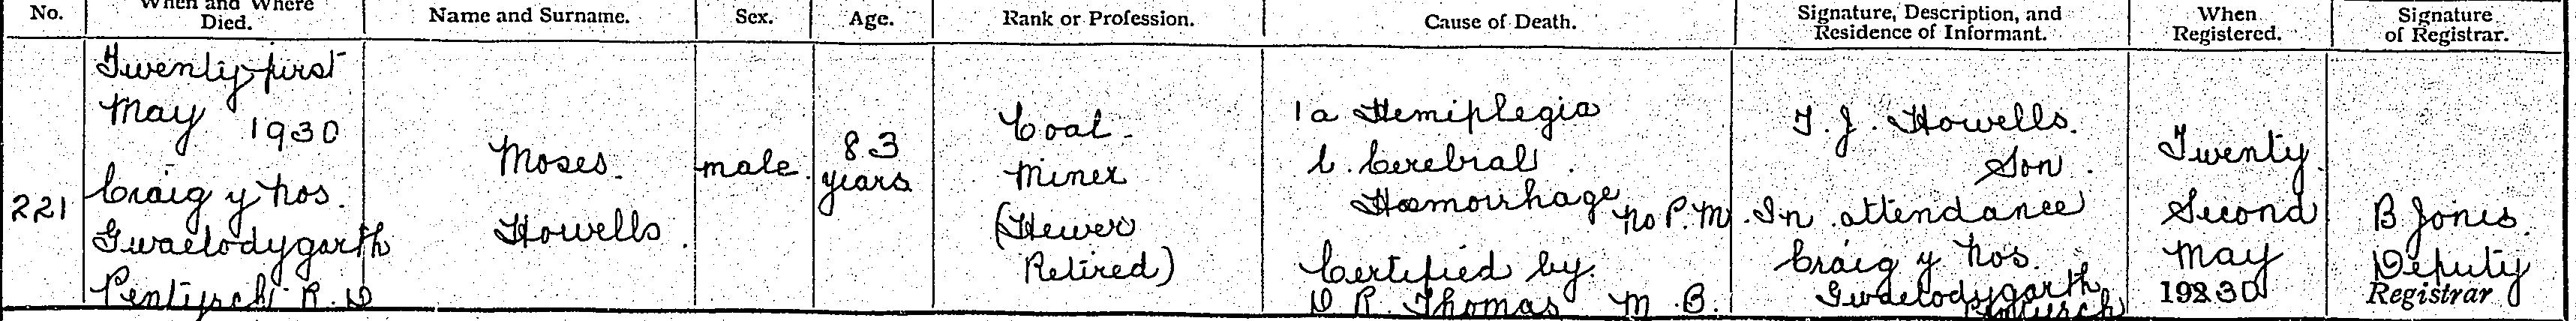 No.
When and Where
Died.
Name and Surname.
Sex.
Age.
Rank or Profession.
Cause of Death.
Signature, Description, and
Residence of Informant.
When
Registered.
Signature
of Registrar.
221
Twenty first
May 1930
Craig y nos.
Gwaelodygarth
Pentyrch R. D
Moses
Howells.
male.
83
years
Coal
Miner
(Hewer
Retired)
1a Hemiplegia
b. Cerebral
Haemorrhage
No P.M.
Certified by
D R. Thomas M.B.
T. J. Howells.
Son.
In attendance
Craig y nos.
Gwaelodygarth
Pentyrch
Twenty
Second
May
1930
B Jones.
Deputy
Registrar